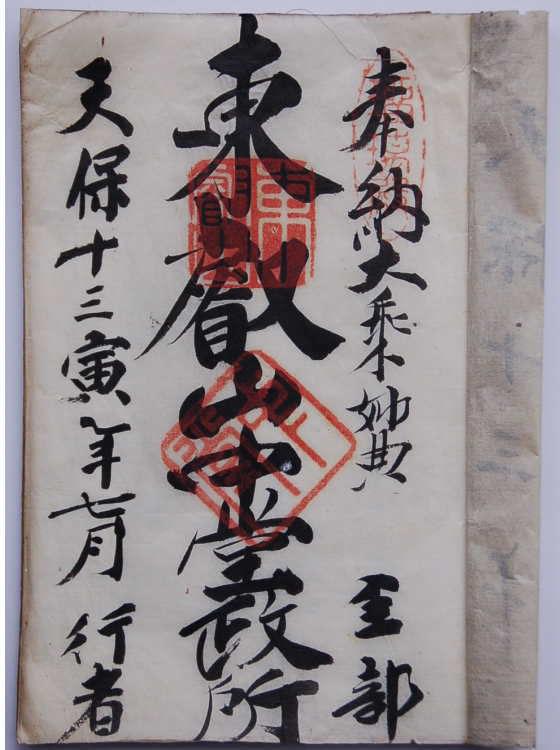 奉納大乗妙典 壹部
東叡山中堂政所
天保十三寅年七月 行者